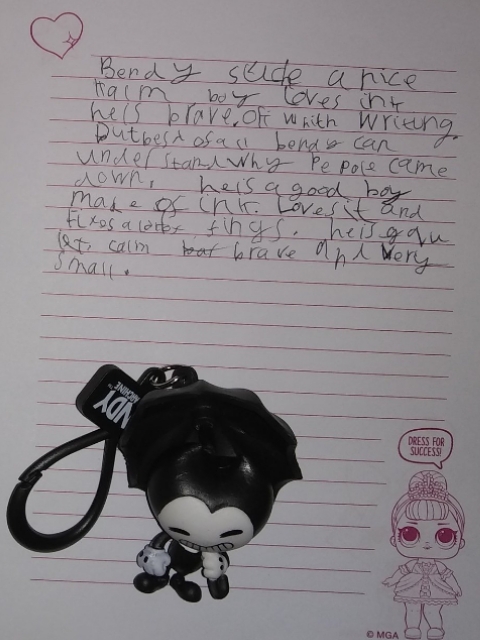 Bendy a nice
kalm boy loves ink
heis brave. Off whith writing.
butbest of all bendy can
understand why Pepole came
down. heis a good boy
made of ink. Loves it and
fixes alotof fings. heis
calm brave and very
small.
NDY
MACHINE
DRESS FOR
SUCCESS!
© MGA